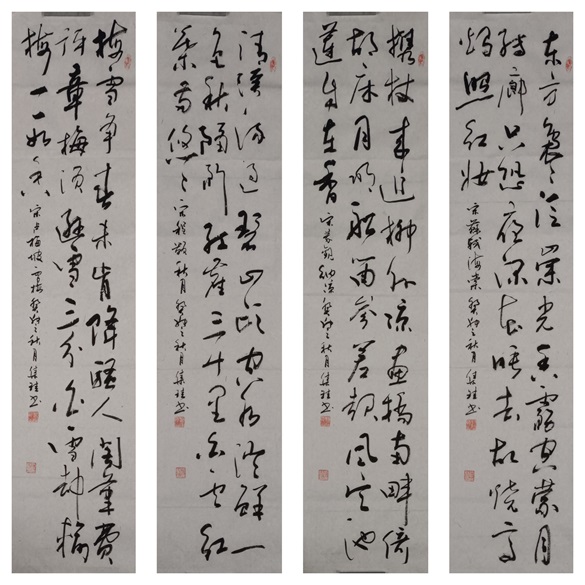 东风袅袅泛崇光香雾空蒙月
转廊只恐夜深花睡去故烧高
烛照红妆
宋苏轼海棠 癸卯之秋月 书
携杖来追柳外凉画桥南畔倚
胡床月明船笛参差起风定池
莲自在香
宋秦观纳凉 癸卯之秋月 书
清溪流过碧山头空水澄鲜一
色秋隔断红尘三十里白云红
叶两悠悠
宋程颢秋月 癸卯之秋月 书
梅雪争春未肯降骚人阁笔费
评章梅须逊雪三分白雪却输
梅一段香
宋卢梅坡雪梅 癸卯之秋月 书